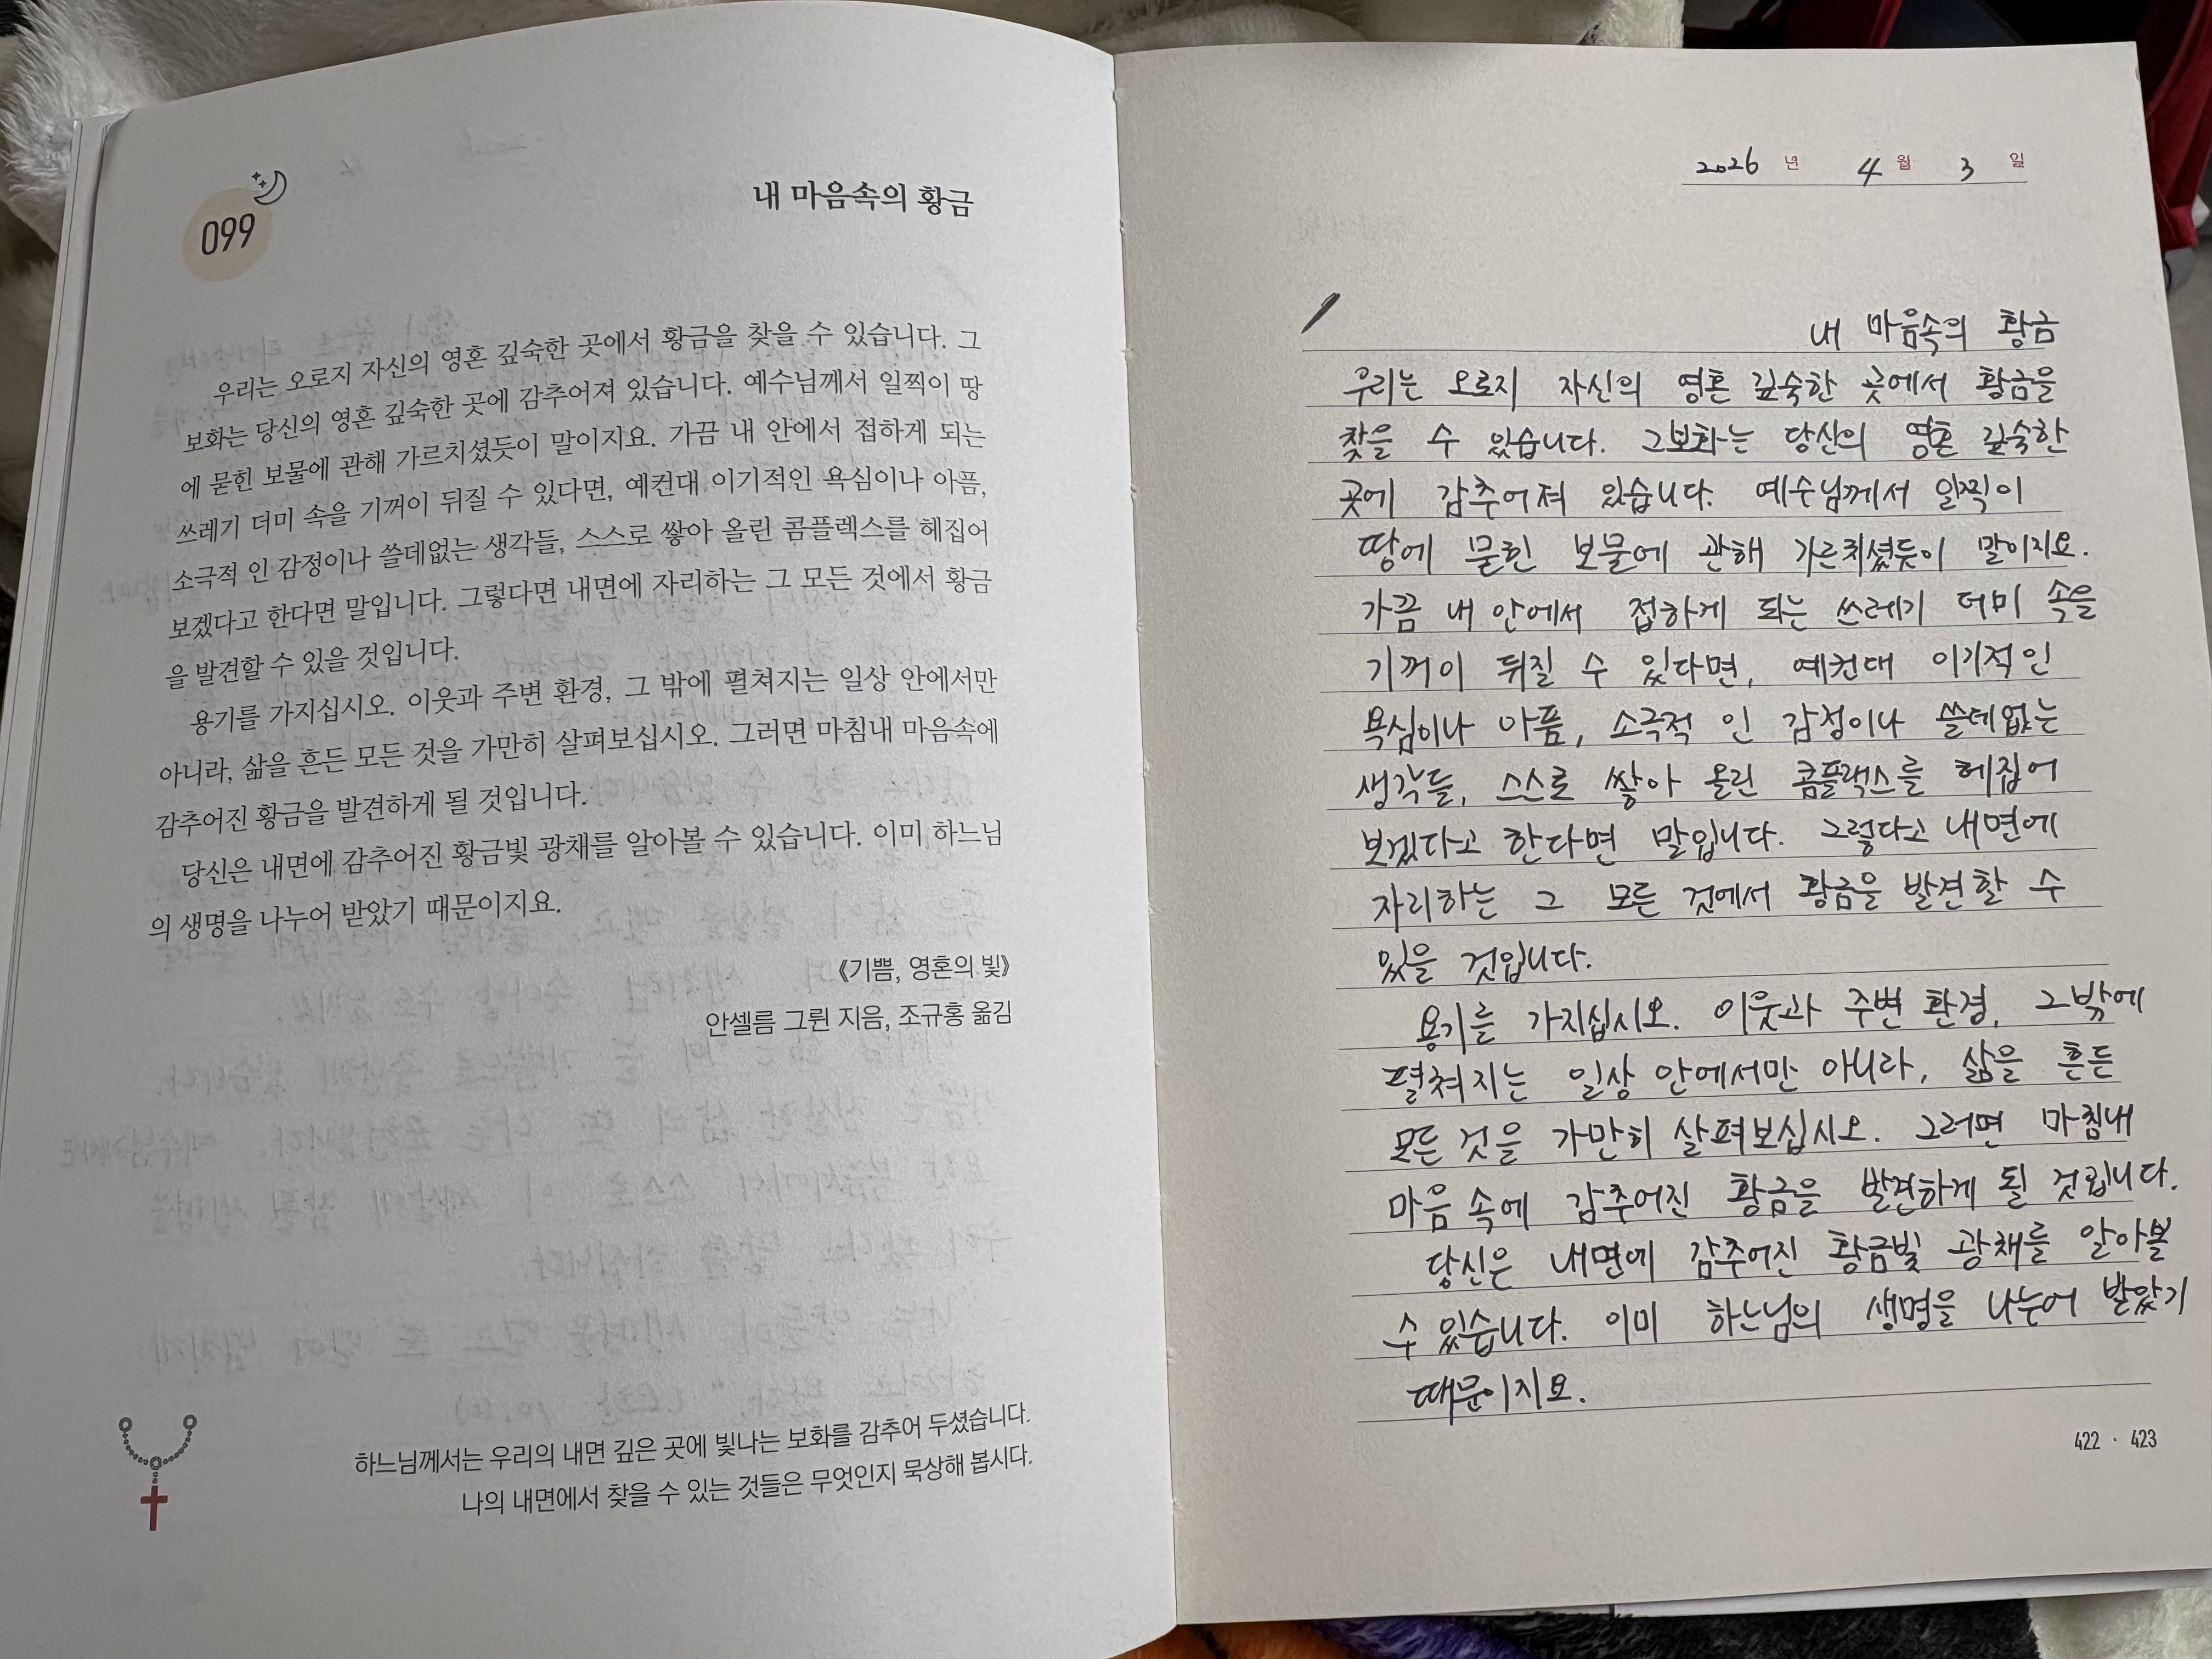 099
내 마음속의 황금
우리는 오로지 자신의 영혼 깊숙한 곳에서 황금을 찾을 수 있습니다. 그
보화는 당신의 영혼 깊숙한 곳에 감추어져 있습니다. 예수님께서 일찍이 땅
에 묻힌 보물에 관해 가르치셨듯이 말이지요. 가끔 내 안에서 접하게 되는
쓰레기 더미 속을 기꺼이 뒤질 수 있다면, 예컨대 이기적인 욕심이나 아픔,
소극적 인 감정이나 쓸데없는 생각들, 스스로 쌓아 올린 콤플렉스를 헤집어
보겠다고 한다면 말입니다. 그렇다면 내면에 자리하는 그 모든 것에서 황금
을 발견할 수 있을 것입니다.
용기를 가지십시오. 이웃과 주변 환경, 그 밖에 펼쳐지는 일상 안에서만
아니라, 삶을 흔든 모든 것을 가만히 살펴보십시오. 그러면 마침내 마음속에
감추어진 황금을 발견하게 될 것입니다.
당신은 내면에 감추어진 황금빛 광채를 알아볼 수 있습니다. 이미 하느님
의 생명을 나누어 받았기 때문이지요.
《기쁨, 영혼의 빛》
안셀름 그륀 지음, 조규홍 옮김
하느님께서는 우리의 내면 깊은 곳에 빛나는 보화를 감추어 두셨습니다.
나의 내면에서 찾을 수 있는 것들은 무엇인지 묵상해 봅시다.
2026 년 4 월 3 일
내 마음속의 황금
우리는 오로지 자신의 영혼 깊숙한 곳에서 황금을
찾을 수 있습니다. 그보화는 당신의 영혼 깊숙한
곳에 감추어져 있습니다. 예수님께서 일찍이
땅에 묻힌 보물에 관해 가르치셨듯이 말이지요.
가끔 내 안에서 접하게 되는 쓰레기 더미 속을
기꺼이 뒤질 수 있다면, 예컨대 이기적인
욕심이나 아픔, 소극적 인 감정이나 쓸데없는
생각들, 스스로 쌓아 올린 콤플랙스를 헤집어
보겠다고 한다면 말입니다. 그렇다고 내면에
자리하는 그 모든 것에서 황금을 발견할 수
있을 것입니다.
용기를 가지십시오. 이웃과 주변 환경, 그밖에
펼쳐지는 일상 안에서만 아니라, 삶을 흔든
모든 것을 가만히 살펴보십시오. 그러면 마침내
마음 속에 감추어진 황금을 발견하게 될 것입니다.
당신은 내면에 감추어진 황금빛 광채를 알아볼
수 있습니다. 이미 하느님의 생명을 나누어 받았기
때문이지요.
422 · 423